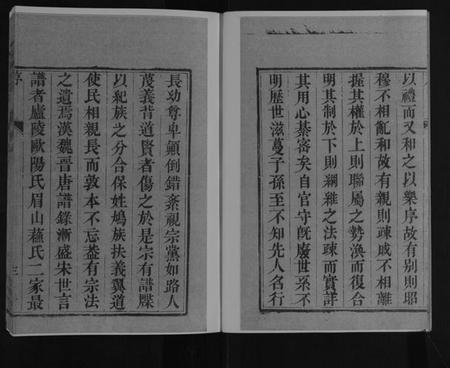 以禮而又和之以樂序故有别則昭
穆不相亂和故有親則疎戚不相離
握其權於上則聯屬之勢渙而復合
明其制於下則綱維之法疎而實詳
其用心綦密矣自官守旣廢世系不
明歷世滋蔓子孫至不知先人名行
長幼尊卑顛倒錯紊視宗黨如路人
蔑義背道賢者傷之於是宗有譜牒
以紀族之分合保姓鳩族扶義翼道
使民相親長而敦本不忘葢有宗法
之遺焉漢魏晉唐譜錄漸盛宋世言
譜者廬陵歐陽氏眉山蘇氏二家最
序
三